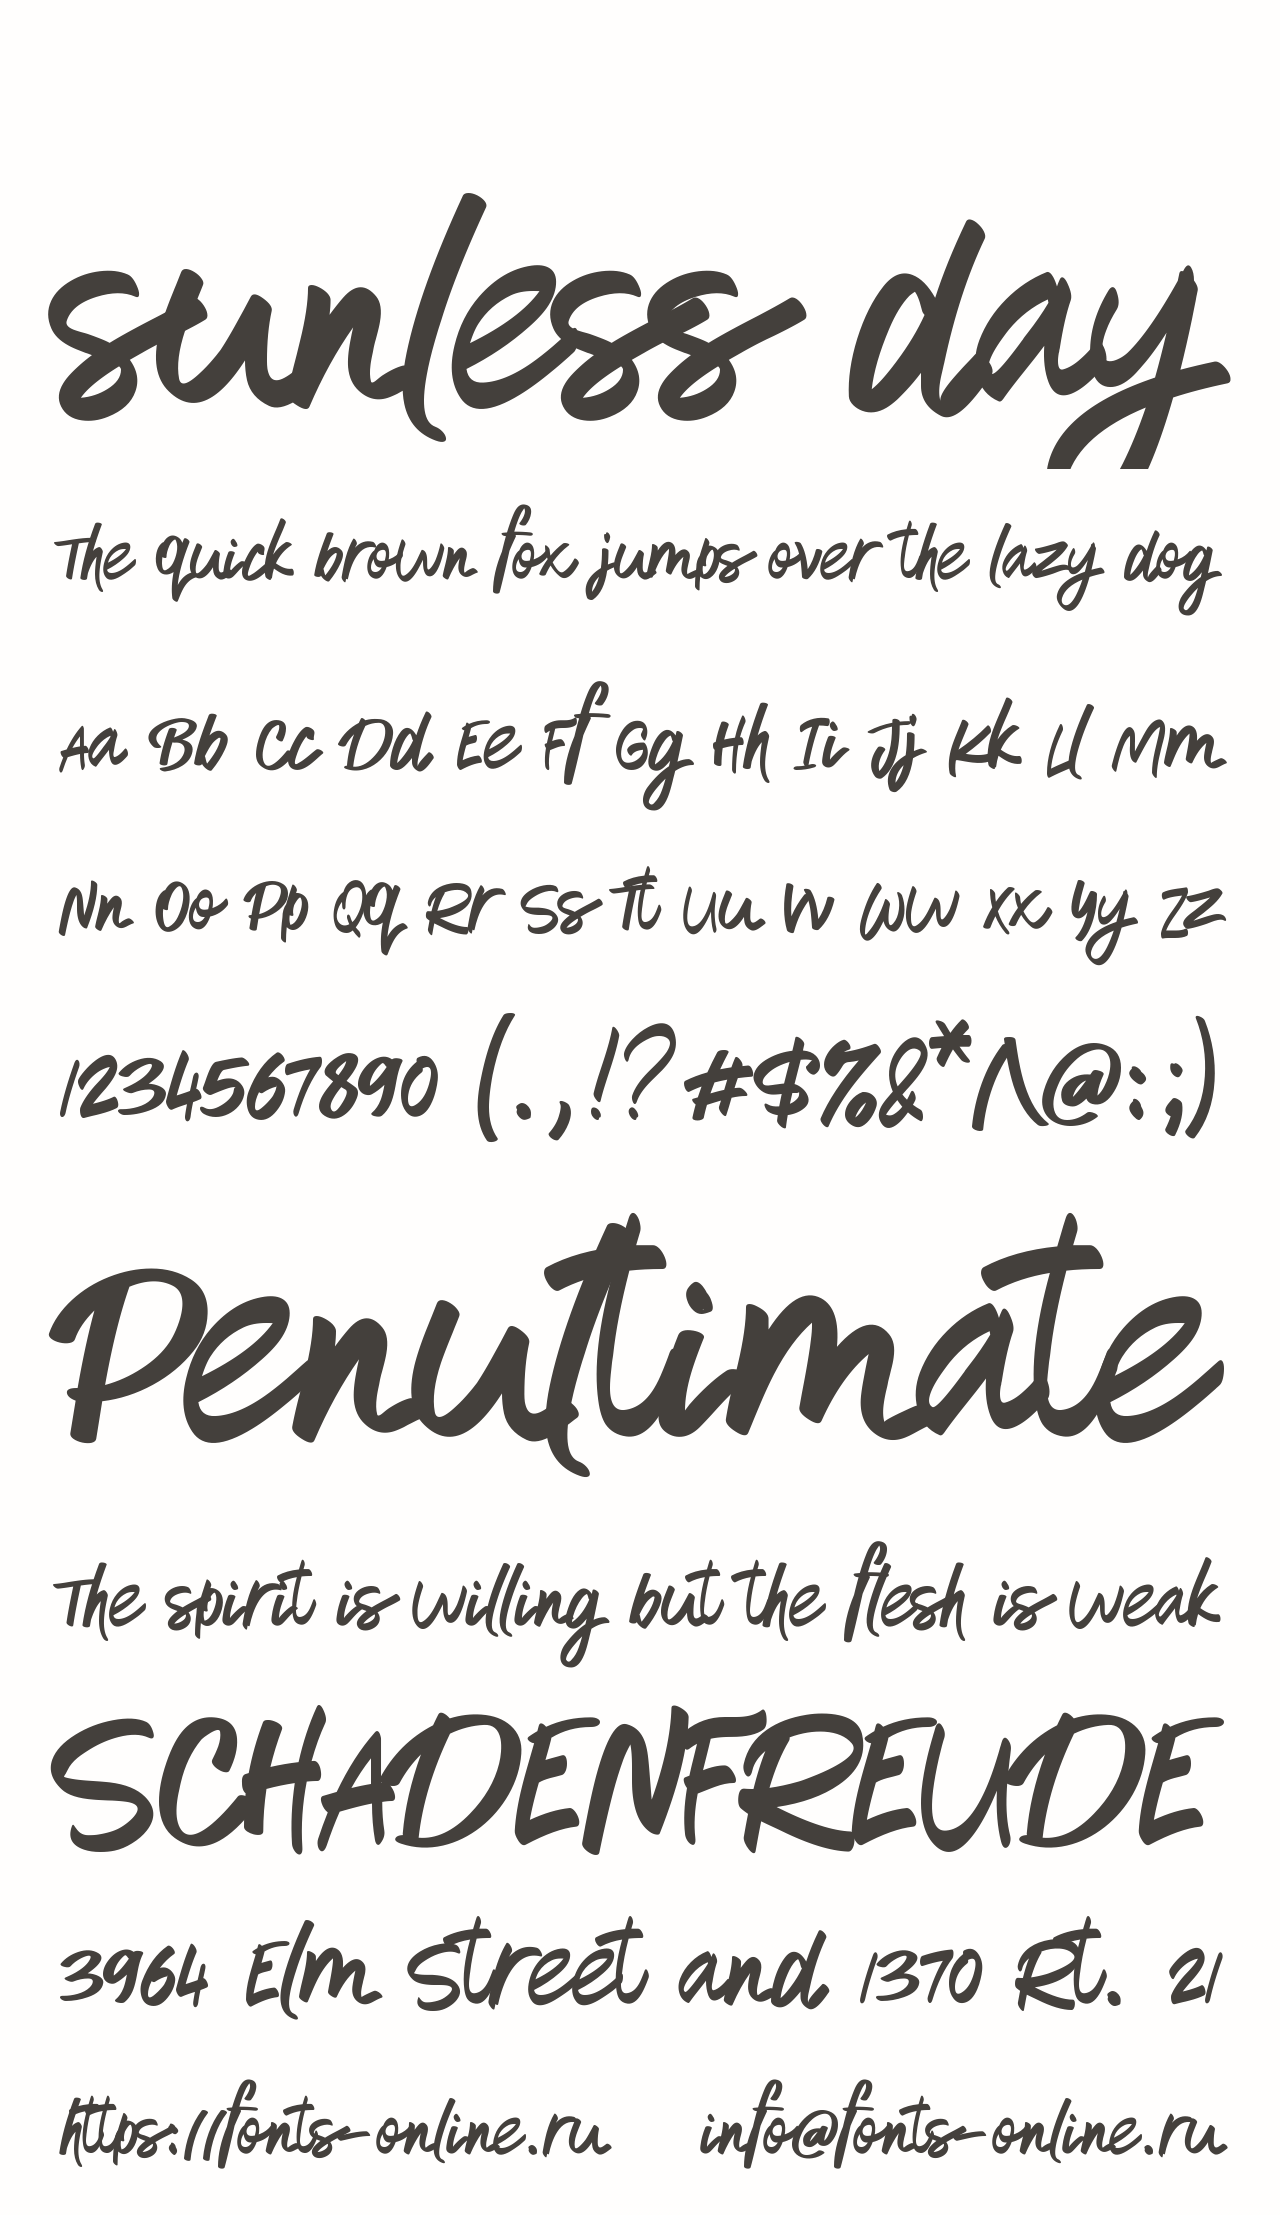 sunless day
The quick brown fox jumps over the lazy dog
Aa Bb Cc Dd Ee Ff Gg Hh Ii Jj Kk Ll Mm
Nn Oo Pp Qq Rr Ss Tt Uu Vv Ww Xx Yy Zz
1234567890 (.,!?#$%&*^@:;)
Penultimate
The spirit is willing but the flesh is weak
SCHADENFREUDE
3964 Elm Street and 1370 Rt. 21
https://fonts-online.ru info@fonts-online.ru